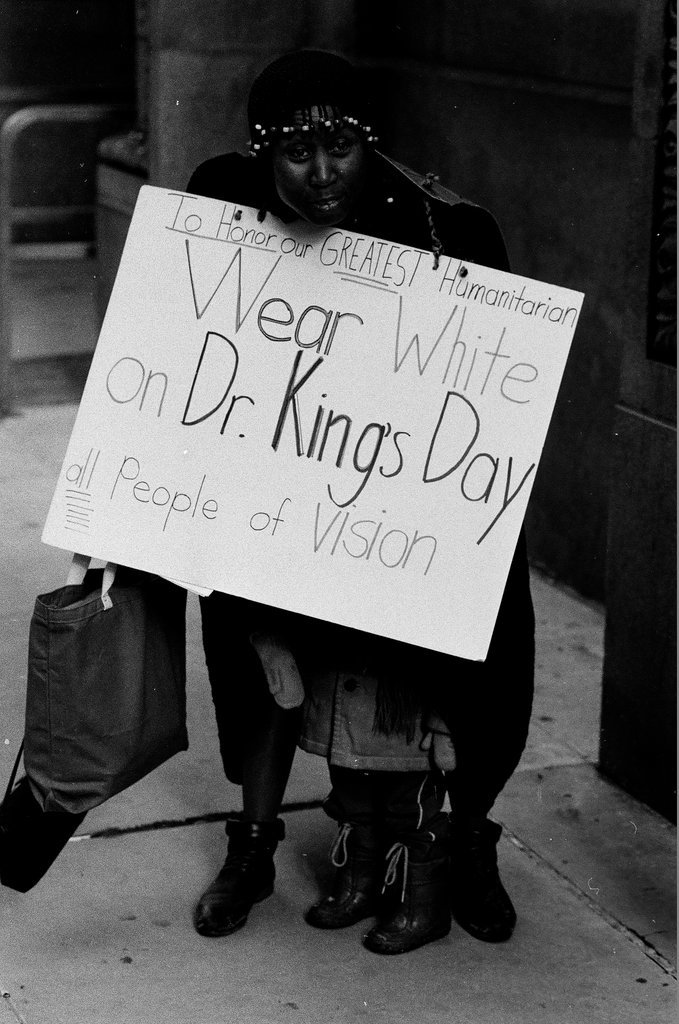 To Honor our GREATEST Humanitarian
Wear White
on Dr. King's Day
all People of Vision